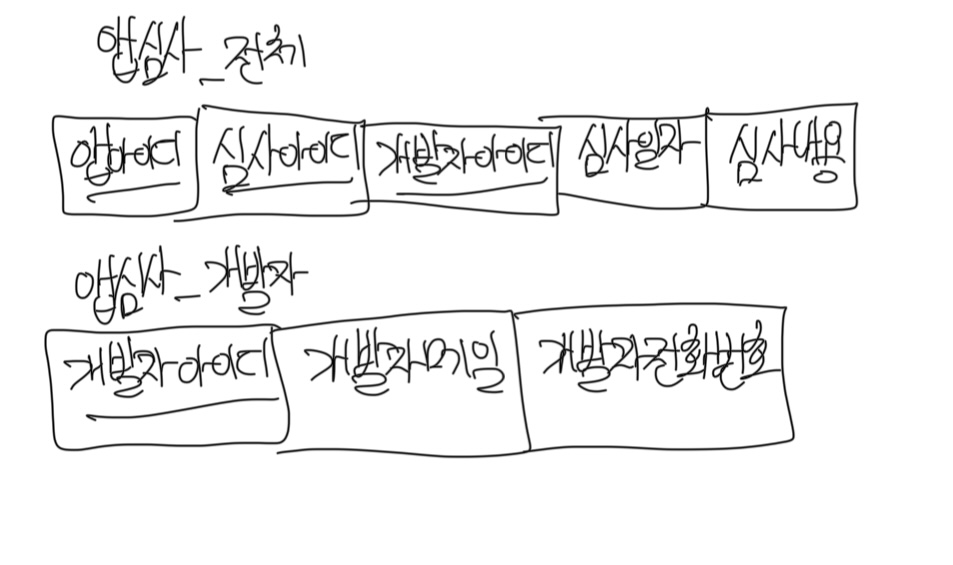 앱심사_전치
앱아이디 심사아이디 개발자아이디 심사일자 심사내용
앱심사_개발자
개발자아이디 개발자메일 개발자전화번호